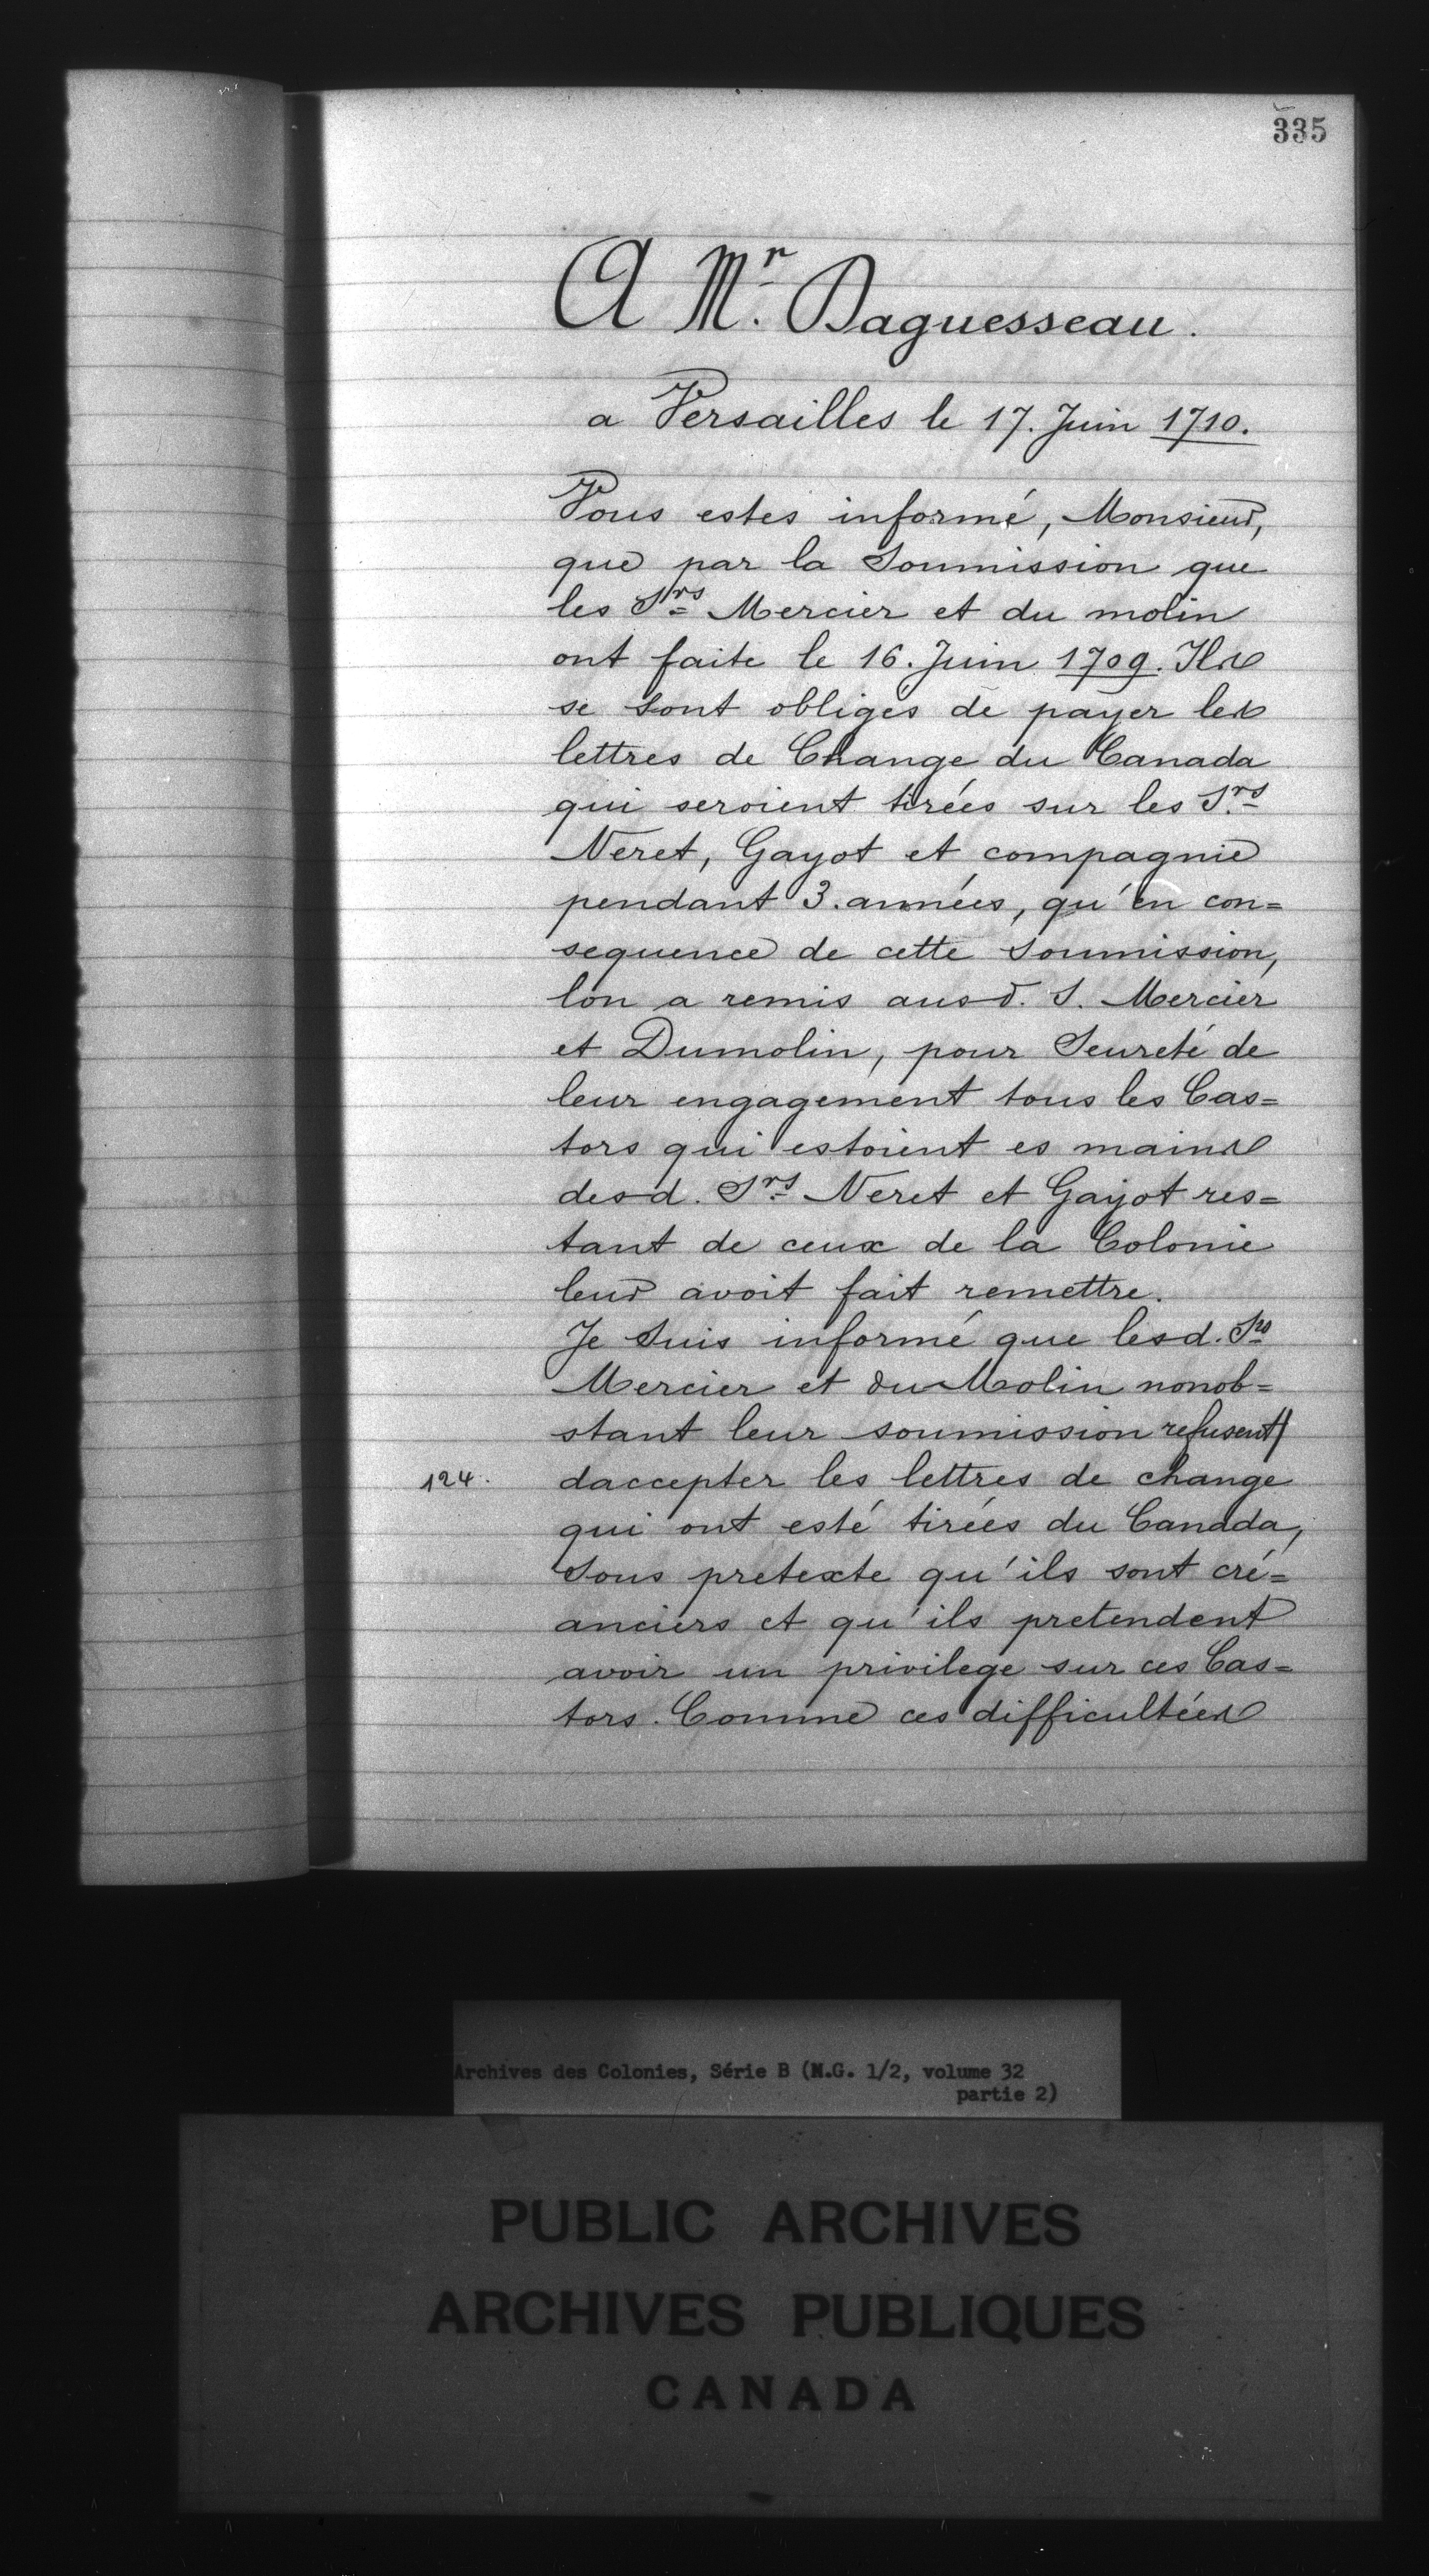 335
A Mr. Daguesseau.
a Versailles le 17. Juin 1710.
Vous estes informé, Monsieur,
que par la Soumission que
les Srs Mercier et du molin
ont faite le 16. Juin 1709. Ils
se sont obligés de payer les
lettres de Change du Canada
qui seroient tirées sur les Srs
Neret, Gayot et compagnie
pendant 3. années, qu'en con=
sequence de cette Soumission,
lon a remis ausd. S. Mercier
et Dumolin, pour Seureté de
leur engagement tous les Cas=
tors qui estoient es mains
desd. Srs Neret et Gayot res=
tant de ceux de la Colonie
leur avoit fait remettre.
Je Suis informé que lesd. Srs
Mercier et du Molin nonob=
stant leur soumission refusent
124. daccepter les lettres de change
qui ont esté tirées du Canada,
Sous pretexte qu'ils sont cré=
anciers et qu'ils pretendent
avoir un privilege sur ces Cas=
tors. Comme ces difficultées
Archives des Colonies, Série B (M.G. 1/2, volume 32
partie 2)
PUBLIC ARCHIVES
ARCHIVES PUBLIQUES
CANADA